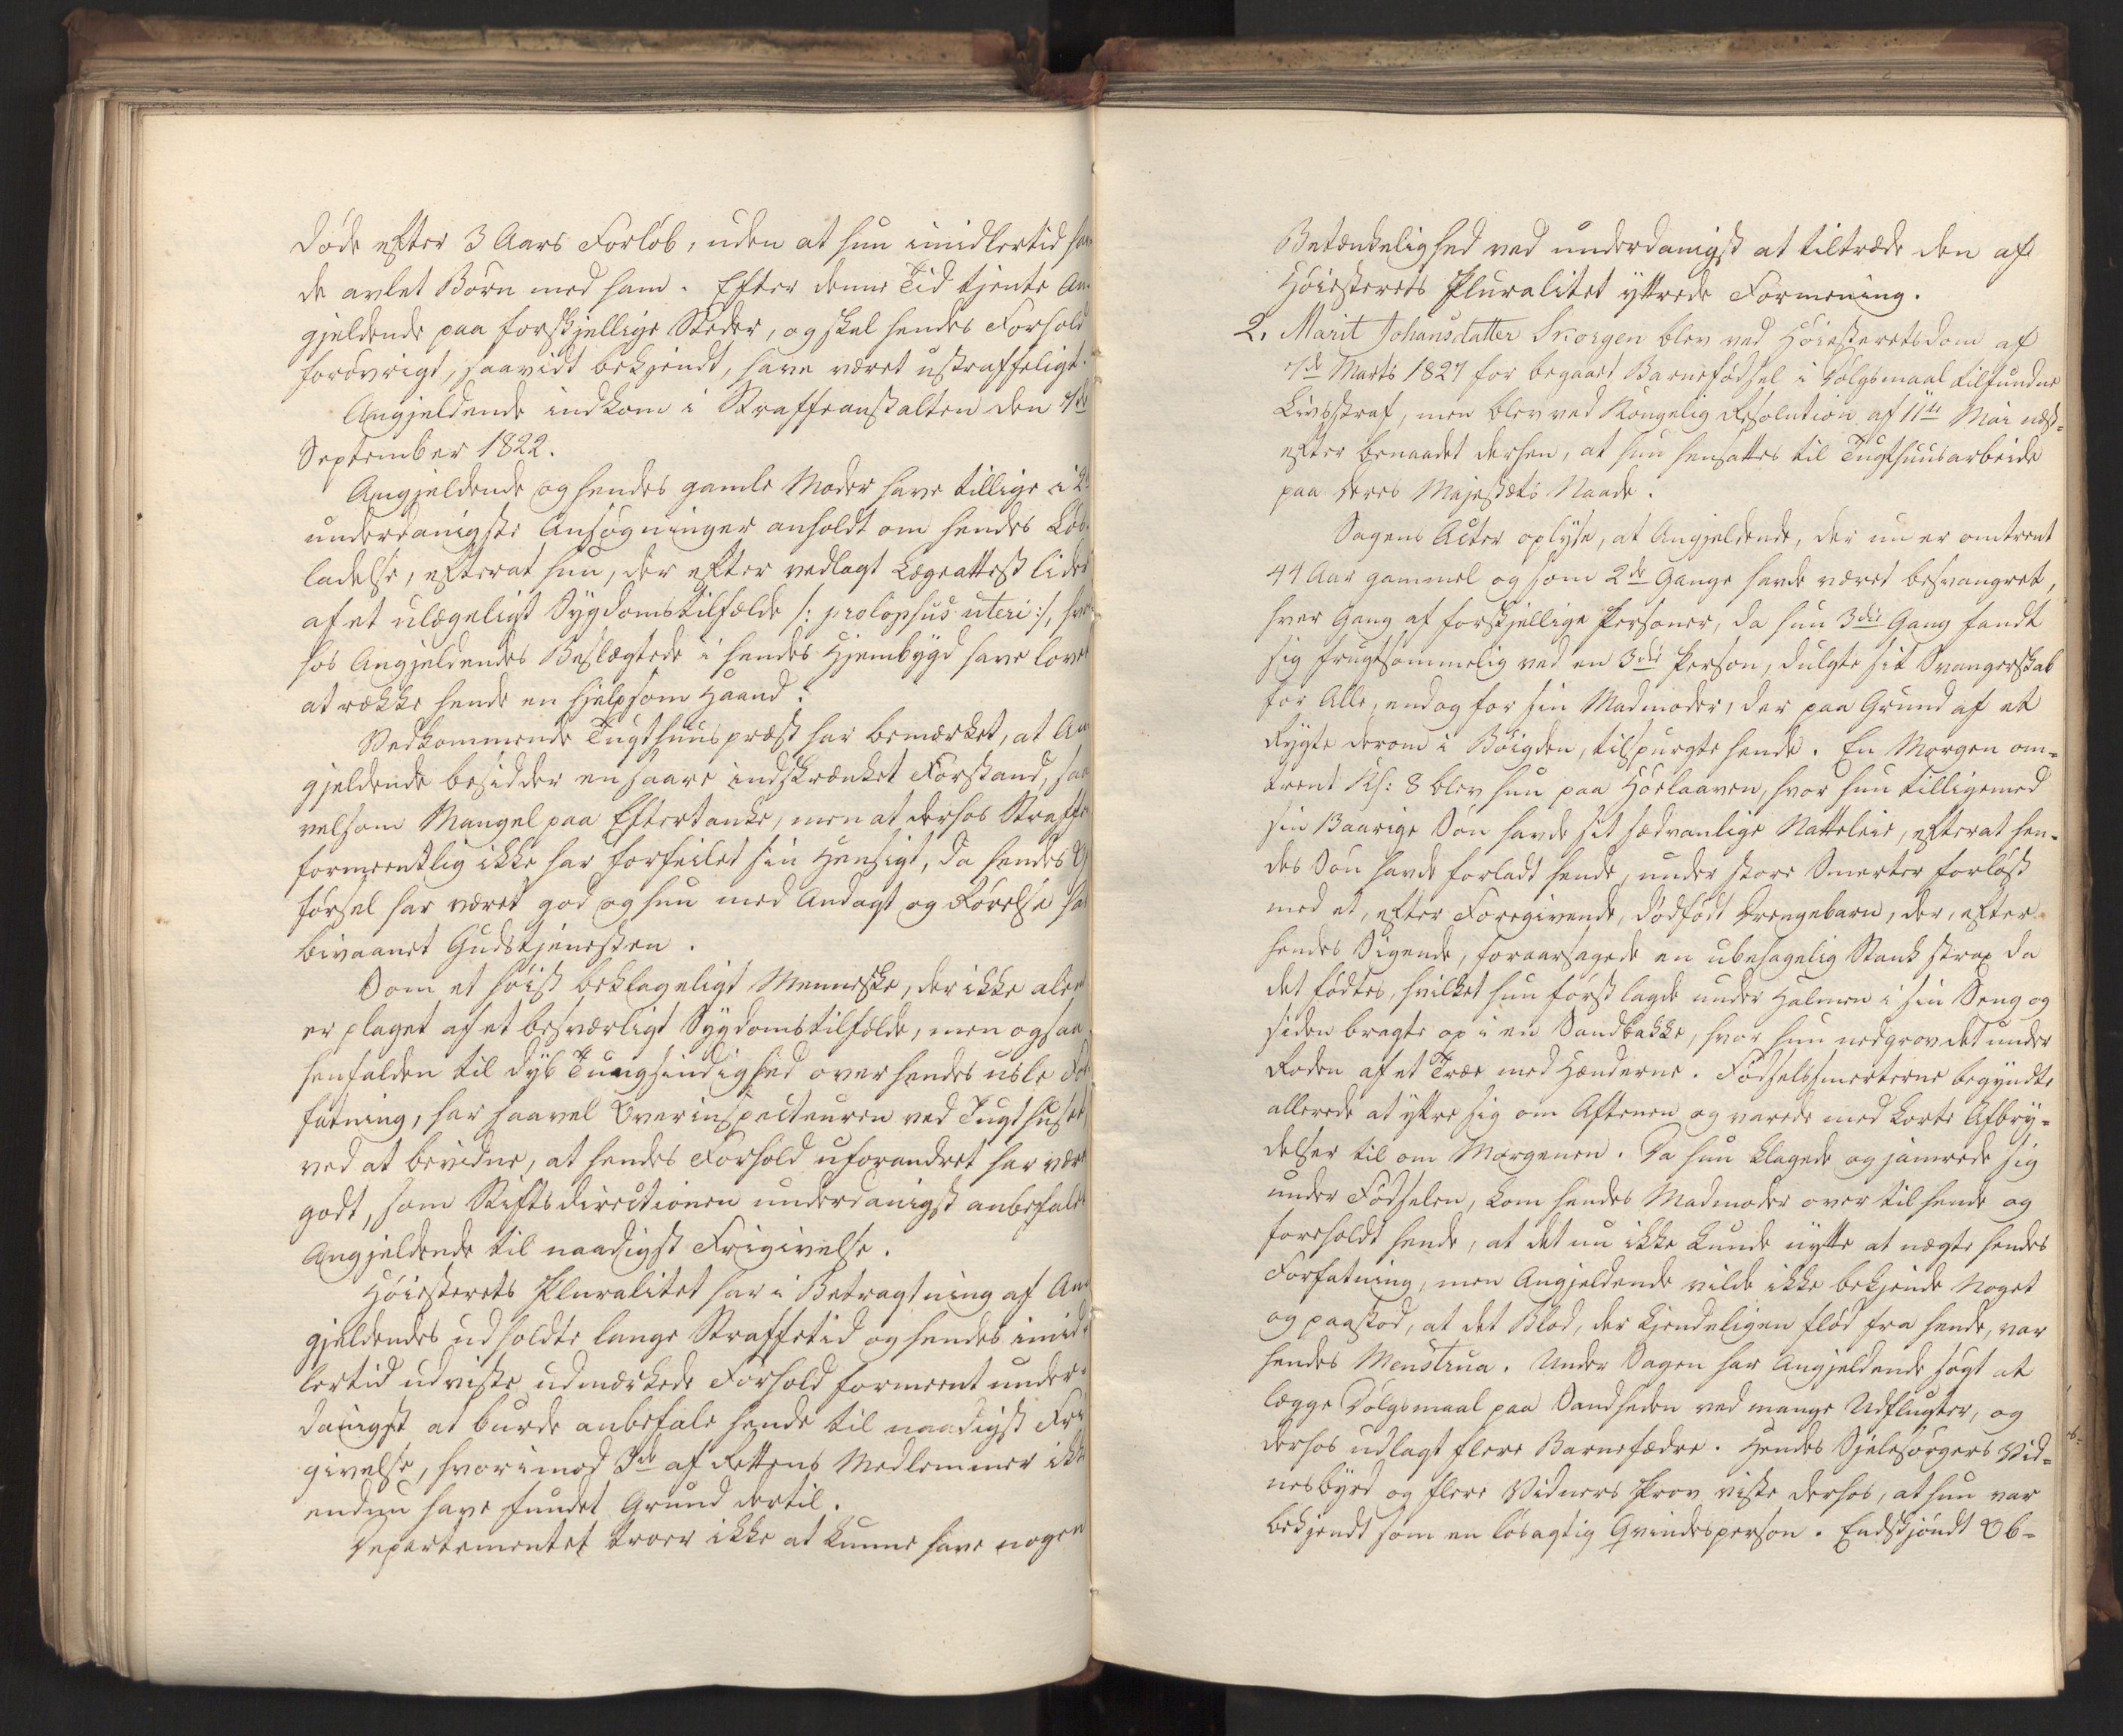 døde efter 3 Aars Forløb, uden at hun imidlertid hav
de avlet Børn med ham. Efter denne Tid tjente An-
gjeldende paa forskjellige Steder, og skal hendes Forhold
forøvrigt, saavidt bekjendt, have været ustraffeligt.
Angjeldende indkom i Straffeanstalten den 7de
September 1822.
Angjeldende og hendes gamle Moder have tillige i 2de
underdanigste Ansøgninger anholdt om hendes Løs-
ladelse, efterat hun, der efter vedlagt Lægeattest lider
af et ulægeligt Sygdomstilfælde /: prolopsus uteri :/, hvor
hos Angjeldendes Beslægtede i hendes Hjembygd have lovet
at række hende en hjelpsom Haand.
Vedkommende Tugthuuspræst har bemærket, at An
gjeldende besidder en saare indskrænket Forstand, saa
velsom Mangel paa Eftertanke, men at derhos Straffen
formeentlig ikke har forfeilet sin Hensigt, da hendes Op
førsel har været god og hun med Andagt og Rørelse har
bivaanet Gudstjenesten.
Som et høist beklageligt Menneske, der ikke alene
er plaget af et besværligt Sygdomstilfælde, men ogsaa
henfalden til dyb Tungsindighed over hendes usle For
fatning, har saavel Overinspecteuren ved Tugthuset,
ved at bevidne, at hendes Forhold uforandret har været
godt, som Stiftsdirectionen underdanigst anbefalet
Angjeldende til naadigst Frigivelse.
Høiesterets Pluralitet har i Betragtning af An-
gjeldendes udholdte lange Straffetid og hendes imid-
lertid udviste udmærkede Forhold formeent under-
danigst at burde anbefale hende til naadigst Fri
givelse, hvorimod 3de af Rettens Medlemmer ikke
endnu have fundet Grund dertil.
Departementet troer ikke at kunne have nogen
Betænkelighed ved underdanigst at tiltræde den af
Høiesterets Pluralitet yttrede Formening.
2. Marit Johansdatter Skorgen blev ved Høiesteretsdom af
7de Marts 1827 for begaaet Barnefødsel i Dølgsmaal tilfunden
Livsstraf, men blev ved Kongelig Resolution af 11te Mai næst-
efter benaadet derhen, at hun hensattes til Tugthuusarbeide
paa Deres Majestæts Naade.
Sagens Acter oplyse, at Angjeldende, der nu er omtrent
44 Aar gammel og som 2de Gange havde været besvangret,
hver Gang af forskjellige Personer, da hun 3die Gang fandt
sig frugtsommelig ved en 3die Person, dulgte sit Svangerskab
for Alle, endog for sin Madmoder, der paa Grund af et
Rygte derom i Bøigden, tilspurgte hende. En Morgen om-
trent Kl: 8 blev hun paa Høelaaven, hvor hun tilligemed
sin 13aarige Søn havde sit sædvanlige Natteleie, efterat hen-
des Søn havde forladt hende, under store Smerter forløst
med et, efter Foregivende, dødfødt Drengebarn, der, efter
hendes Sigende, foraarsagede en ubehagelig Stank strax da
det fødtes, hvilket hun først lagde under Halmen i sin Seng og
siden bragte op i en Sandbakke, hvor hun nedgrov det under
Roden af et Træe med Hænderne. Fødselssmerterne begyndte
allerede at yttre sig om Aftenen og varede med korte Afbry-
delser til om Morgenen. Da hun klagede og jamrede sig
under Fødselen, kom hendes Madmoder over til hende og
foreholdt hende, at det nu ikke kunde nytte at nægte hendes
Forfatning, men Angjeldende vilde ikke bekjende Noget
og paastod, at det Blod, der kjendeligen flød fra hende, var
hendes Menstrua. Under Sagen har Angjeldende søgt at
lægge Dølgsmaal paa Sandheden ved mange Udflugter, og
derhos udlagt flere Barnefædre. Hendes Sjelesørgers Vid-
nesbyrd og flere Vidners Prov viste derhos, at hun var
bekjendt som en løsagtig Qvindesperson. Endskjøndt Ob-